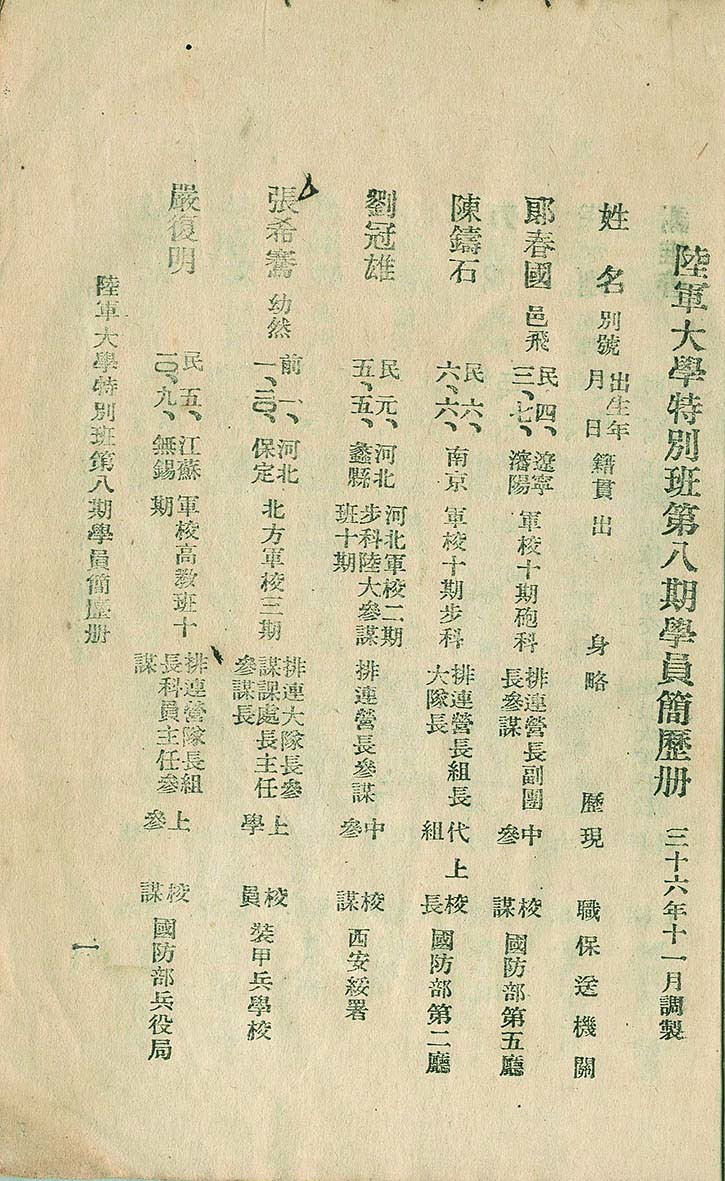 陸軍大學特別班第八期學員簡歷册 三十六年十一月調製
姓名 別號 出生年月日 籍貫 出身 略歷 現職 保送機關
鄭春國 邑飛 民四、三、七、 遼寧瀋陽 軍校十期砲科 排連營長副團長參謀 中校參謀 國防部第五廳
陳鑄石 民六、六、六、 南京 軍校十期步科 排連營長組長大隊長 上校代組長 國防部第二廳
劉冠雄 民元、五、五、 河北蠡縣 河北軍校二期步科陸大參謀班十期 排連營長參謀 中校參謀 西安綏署
張希騫 幼然 前一、一、二〇、 河北保定 北方軍校三期 排連大隊長參謀課處長主任參謀長 上校學員 裝甲兵學校
嚴復明 民五、一〇、九、 江蘇無錫 軍校高教班十期 排連營隊長組長科員主任參謀 上校參謀 國防部兵役局
陸軍大學特別班第八期學員簡歷册
一